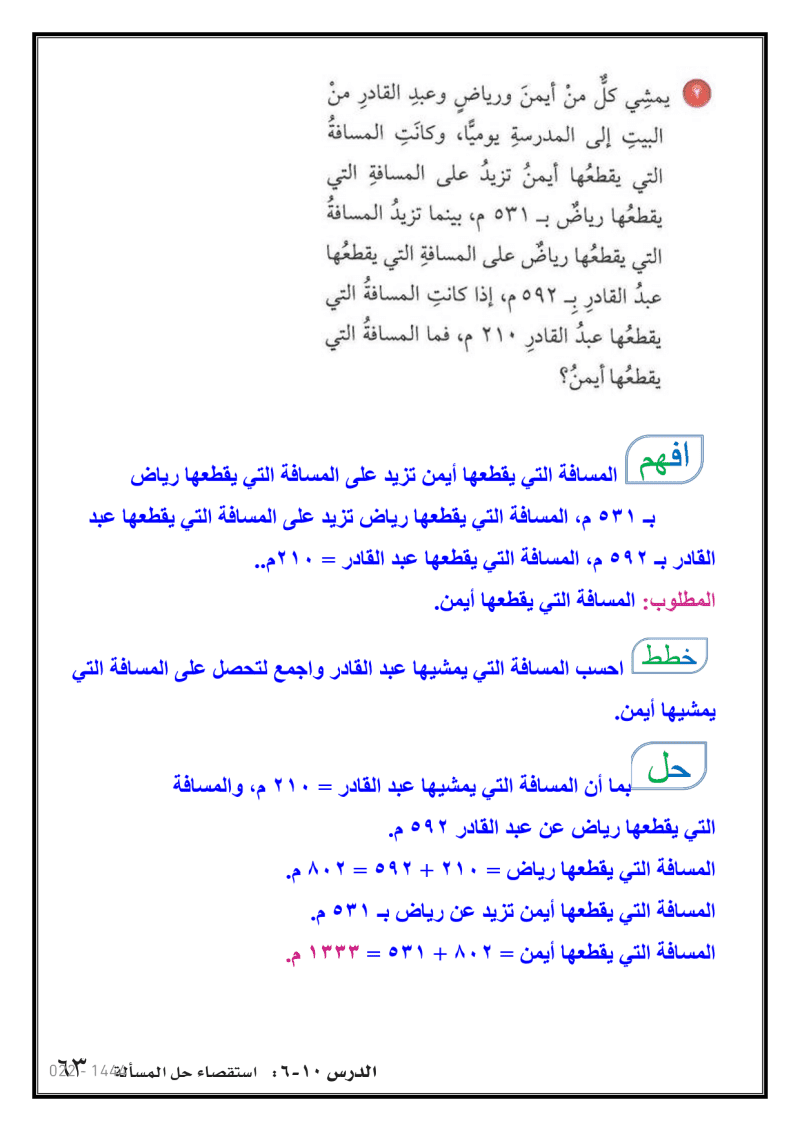 ٢ يمشِي كلٌّ منْ أيمنَ ورياضٍ وعبدِ القادرِ منْ
البيتِ إلى المدرسةِ يوميًّا، وكانَتِ المسافةُ
التي يقطعُها أيمنُ تزيدُ على المسافةِ التي
يقطعُها رياضٌ بـ ٥٣١ م، بينما تزيدُ المسافةُ
التي يقطعُها رياضٌ على المسافةِ التي يقطعُها
عبدُ القادرِ بِـ ٥٩٢ م، إذا كانتِ المسافةُ التي
يقطعُها عبدُ القادرِ ٢١٠ م، فما المسافةُ التي
يقطعُها أيمنُ؟
افهم المسافة التي يقطعها أيمن تزيد على المسافة التي يقطعها رياض
بـ ٥٣١ م، المسافة التي يقطعها رياض تزيد على المسافة التي يقطعها عبد
القادر بـ ٥٩٢ م، المسافة التي يقطعها عبد القادر = ٢١٠م..
المطلوب: المسافة التي يقطعها أيمن.
خطط احسب المسافة التي يمشيها عبد القادر واجمع لتحصل على المسافة التي
يمشيها أيمن.
حل بما أن المسافة التي يمشيها عبد القادر = ٢١٠ م، والمسافة
التي يقطعها رياض عن عبد القادر ٥٩٢ م.
المسافة التي يقطعها رياض = ٢١٠ + ٥٩٢ = ٨٠٢ م.
المسافة التي يقطعها أيمن تزيد عن رياض بـ ٥٣١ م.
المسافة التي يقطعها أيمن = ٨٠٢ + ٥٣١ = ١٣٣٣ م.
الدرس ١٠-٦: استقصاء حل المسألة ٦٣